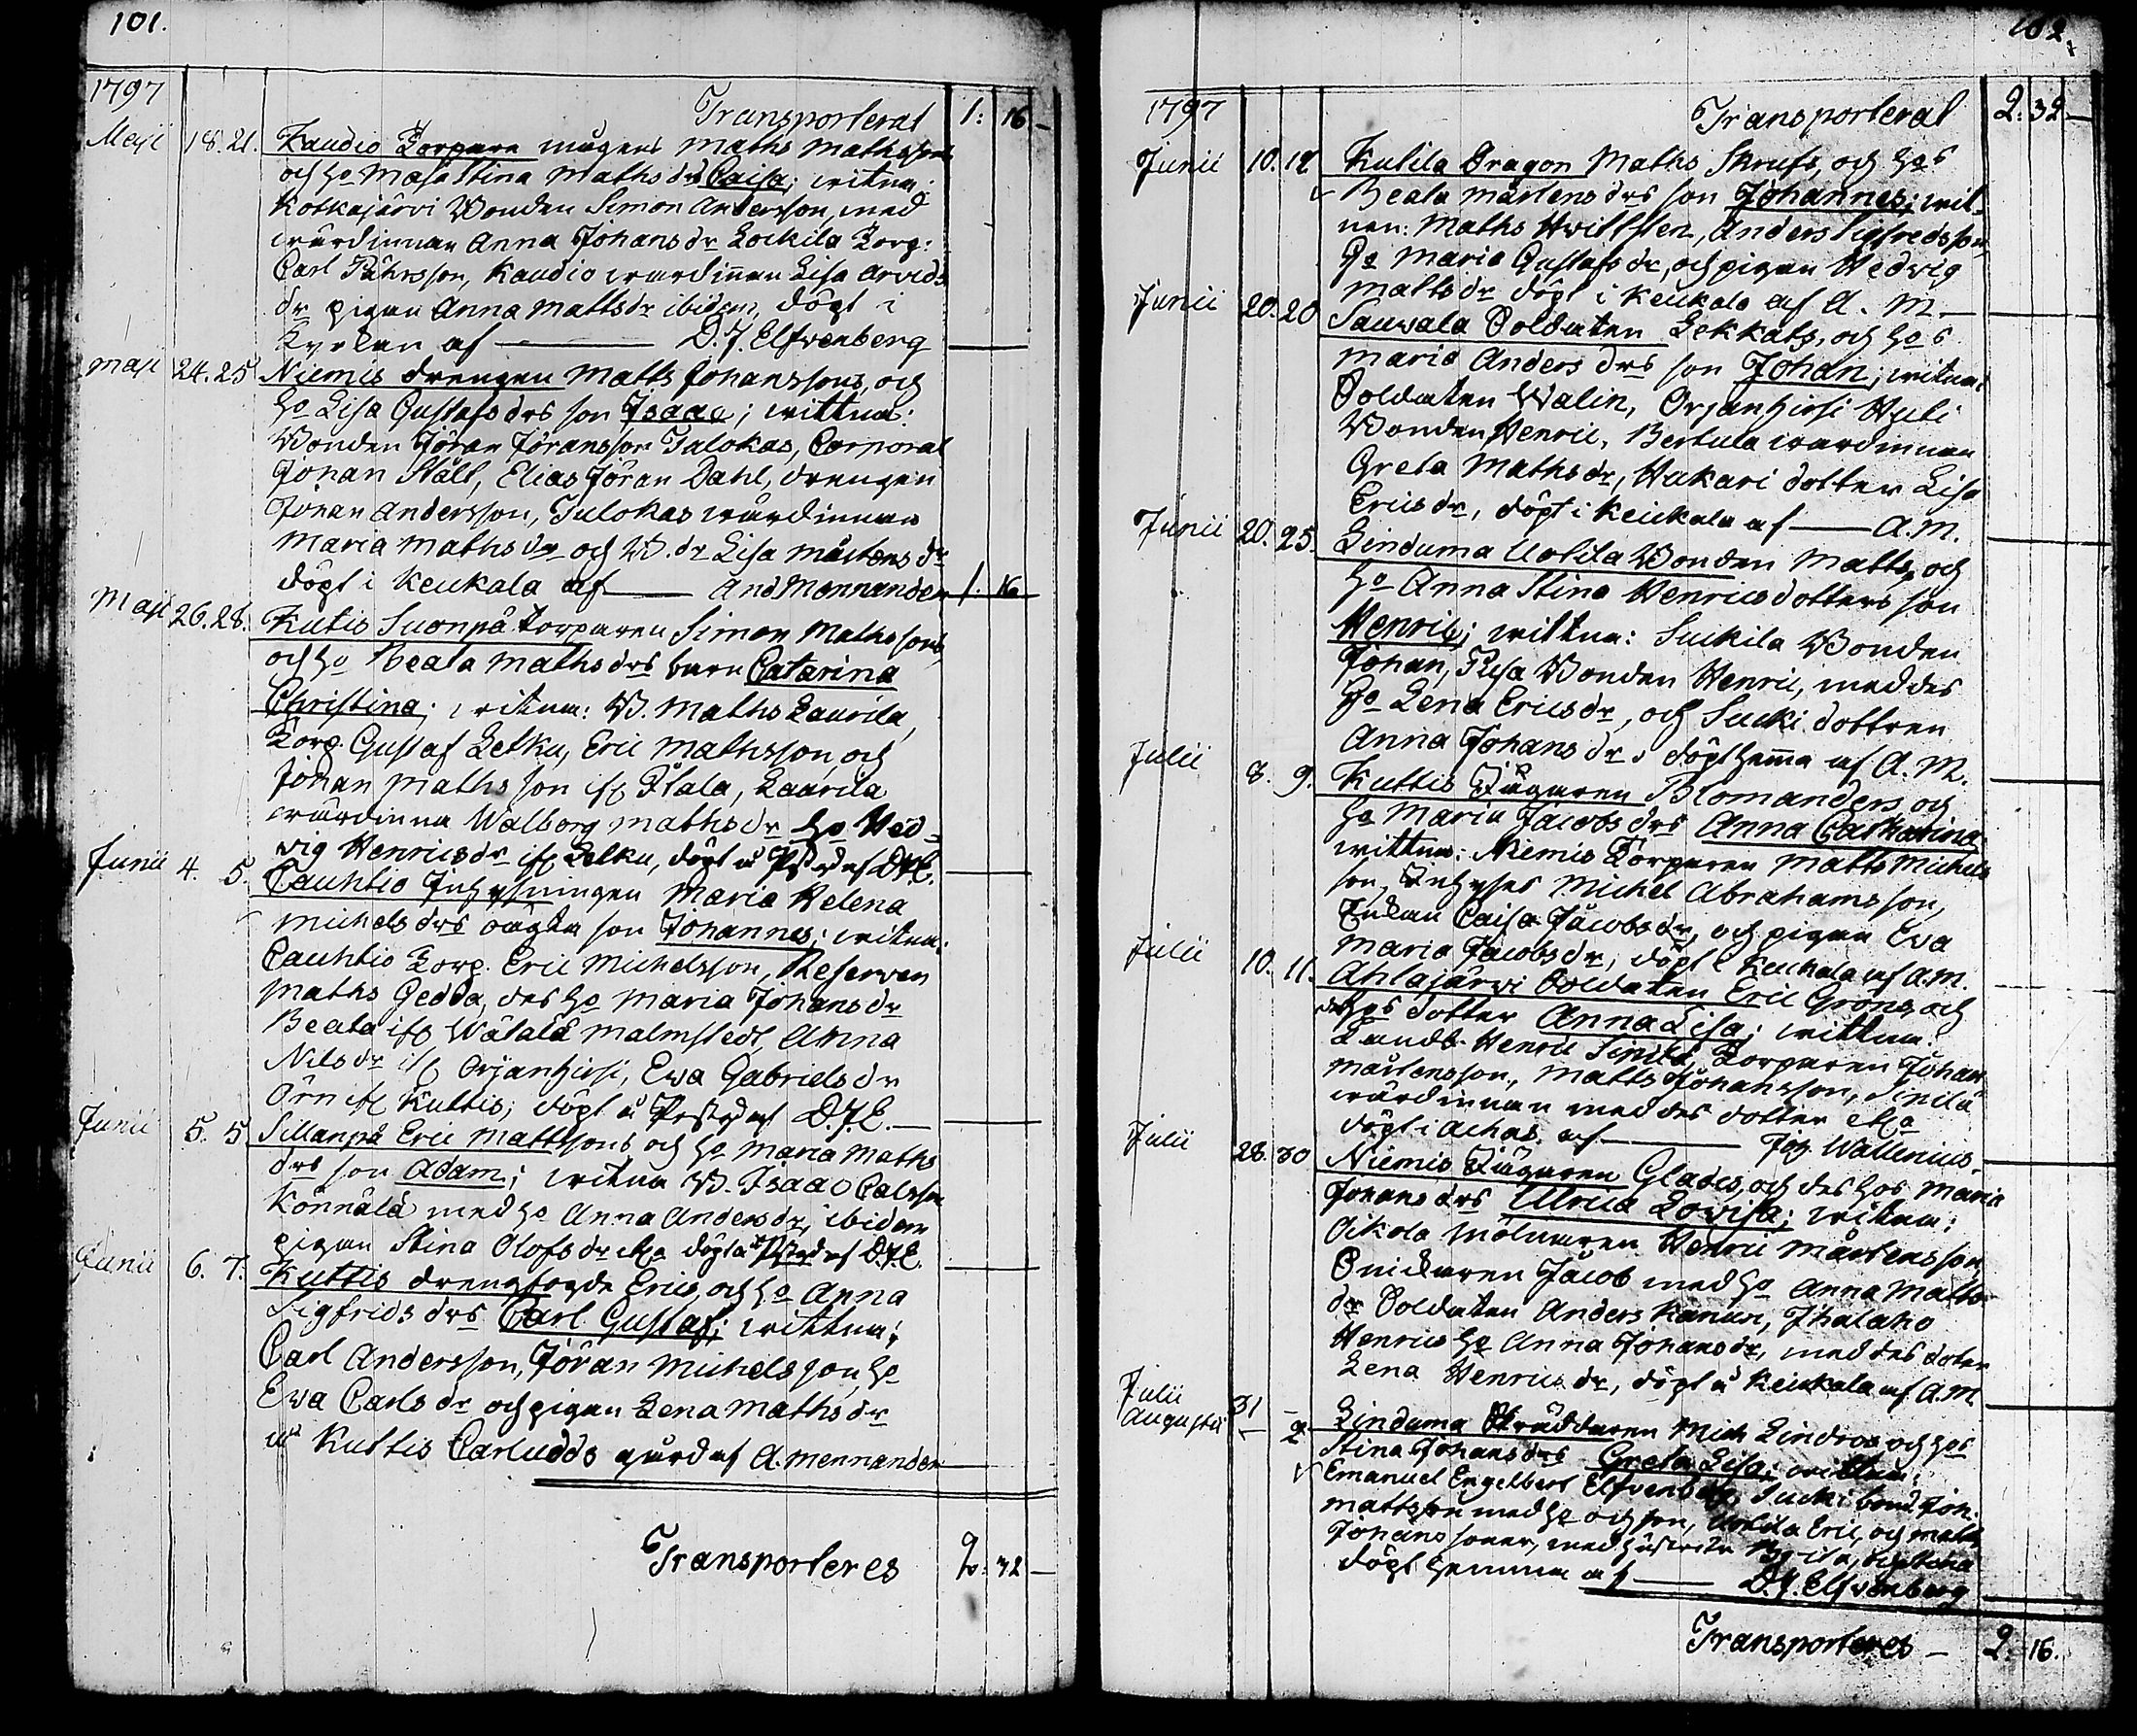 101.
1797
Transporterat 1: 16 –
Maji 18. 21. Kaudio Torpare mågens Maths Mathssons
och ho Maja Stina Mathsdrs Caisa; witna:
Kotkajärvi Bonden Simon Andersson, med
wärdinnan Anna Johansdr Lockila Torp:
Carl Pährsson, Kaudio wärdinnan Lisa Arvids
dr pigan Anna Mattsdr ibidem, döpt i
Kyrkan af — D. J. Elfvenberg
Maji 24. 25 Niemis drengen Matts Johanssons, och
ho Lisa Gustafsdrs son Isaac; wittna:
Bonden Jöran Jöransson Talokas, Corporal
Johan Ståll, Elias Jöran Dahl, drengen
Johan Andersson, Talokas wärdinnan
Maria Mathsdr och B. dr Lisa Mårtensdr
döpt i Keikala af — And Mennander 1. 16
Maji 26. 28. Kutis Suonpä torparen Simon Mathssons,
och ho Beata Mathsdrs barn Catarina
Christina; witna: B. Maths Laurila,
Torp. Gustaf Letku, Eric Mathsson, och
Johan Mathsson if Alala, Laurila
wärdinna Walborg Mathsdr ho Hed-
wig Henricsdr if Letku, döpt å Pstgd af DJE.
Junii 4. 5. Cauhtio Inhysningen Maria Helena
Michelsdrs oägta son Johannes; witna:
Cauhtio Torp. Eric Michelsson, Reserven
Maths Gedda, des ho Maria Johansdr
Beata if Wätälä Malmstedt, Anna
Nilsdr if Orjanhirsi, Ewa Gabrielsdr
Örn if Kuttis; döpt å Prestgd af D.J.E. —
Junii 5. 5 Sillanpä Eric Mattssons, och ho Maria Maths
drs son Adam; witna B. Isaac Carlsson
Könnälä med ho Anna Andersdr, ibidem
pigan Stina Olofsdr döpt å Pstgd af D.J.E.
Junii 6. 7. Kuttis drengfogde Erics, och ho Anna
Sigfridsdrs Carl Gustaf; wittna:
Carl Andersson, Jöran Michelsson, ho
Ewa Carlsdr och pigan Lena Mathsdr
å Kuttis Carludds gård af A. Mennander
Transporteres 2: 32 –
102.
1797
Transporterat 2: 32 –
Junii 10. 12 Kulila Dragon Maths Skrufs, och hos
Beata Mårtensdrs son Johannes; wit-
nen: Maths Hvittsten, Anders Sigfredsson,
ho Maria Gustafsdr, och pigan Hedwig
Mattsdr döpt i Keikala af A. M. —
Junii 20. 20 Sauvala Soldaten Lekkats, och hos
Maria Andersdrs son Johan; witna:
Soldaten Walin, Orjanhirsi Huli
Bonden Henric, Bertula wärdinnan
Greta Mathsdr, Hukari dotter Lisa
Ericsdr, döpt i Keikala af — A.M.
Junii 20. 25. Linduma Uotila Bonden Matts, och
ho Anna Stina Henricsdotters son
Henric; wittna: Suikila Bonden
Johan, Pusa Bonden Henric, med des
ho Lena Ericsdr, och Sucki dottren
Anna Johansdr, döpt hema af A. M.
Julii 8. 9. Kuttis Jägaren Blomanders och
ho Maria Jacobsdrs Anna Catharina
wittna: Niemis Torparen Matts Michels
son, Inhyses Michel Abrahamsson,
Enkan Caisa Jacobsdr, och pigan Ewa
Maria Jacobsdr, döpt i Keikala af A.M.
Julii 10. 11. Ahlajärwi Soldaten Eric Gröns, och
hos dotter Anna Lisa; wittna:
Henric Sinilä, Torparen Johan
Mårtensson, Matts Johansson, Sinilä
wärdinnan med des dotter
döpt i Achas. af — Joh. Wallenius.
Julii 28. 30 Niemis Jägaren Glades, och des hos Maria
Johansdrs Ulrica Lovisa; witna:
Oikola Mölnaren Henric Mårtensson,
Snickaren Jacob med ho Anna Matts-
dr Soldaten Anders Kanun, Ihalaho
Henrics ho Anna Johansdr, med des doter
Lena Henricsdr, döpt å Keikala af A.M.
Julii 31
Augusti – 2 Linduma Skräddaren Mich Lindros och hos
Stina Johansdrs Greta Lisa; wittna:
Emanuel Engelbert Elfvenberg, Sucki bond Joh.
Mattsson med ho och son, Uotila Eric, och Matts
Johanssoner, med
döpt hemma af — D. J. Elfvenberg
Transporteres – 2: 16.